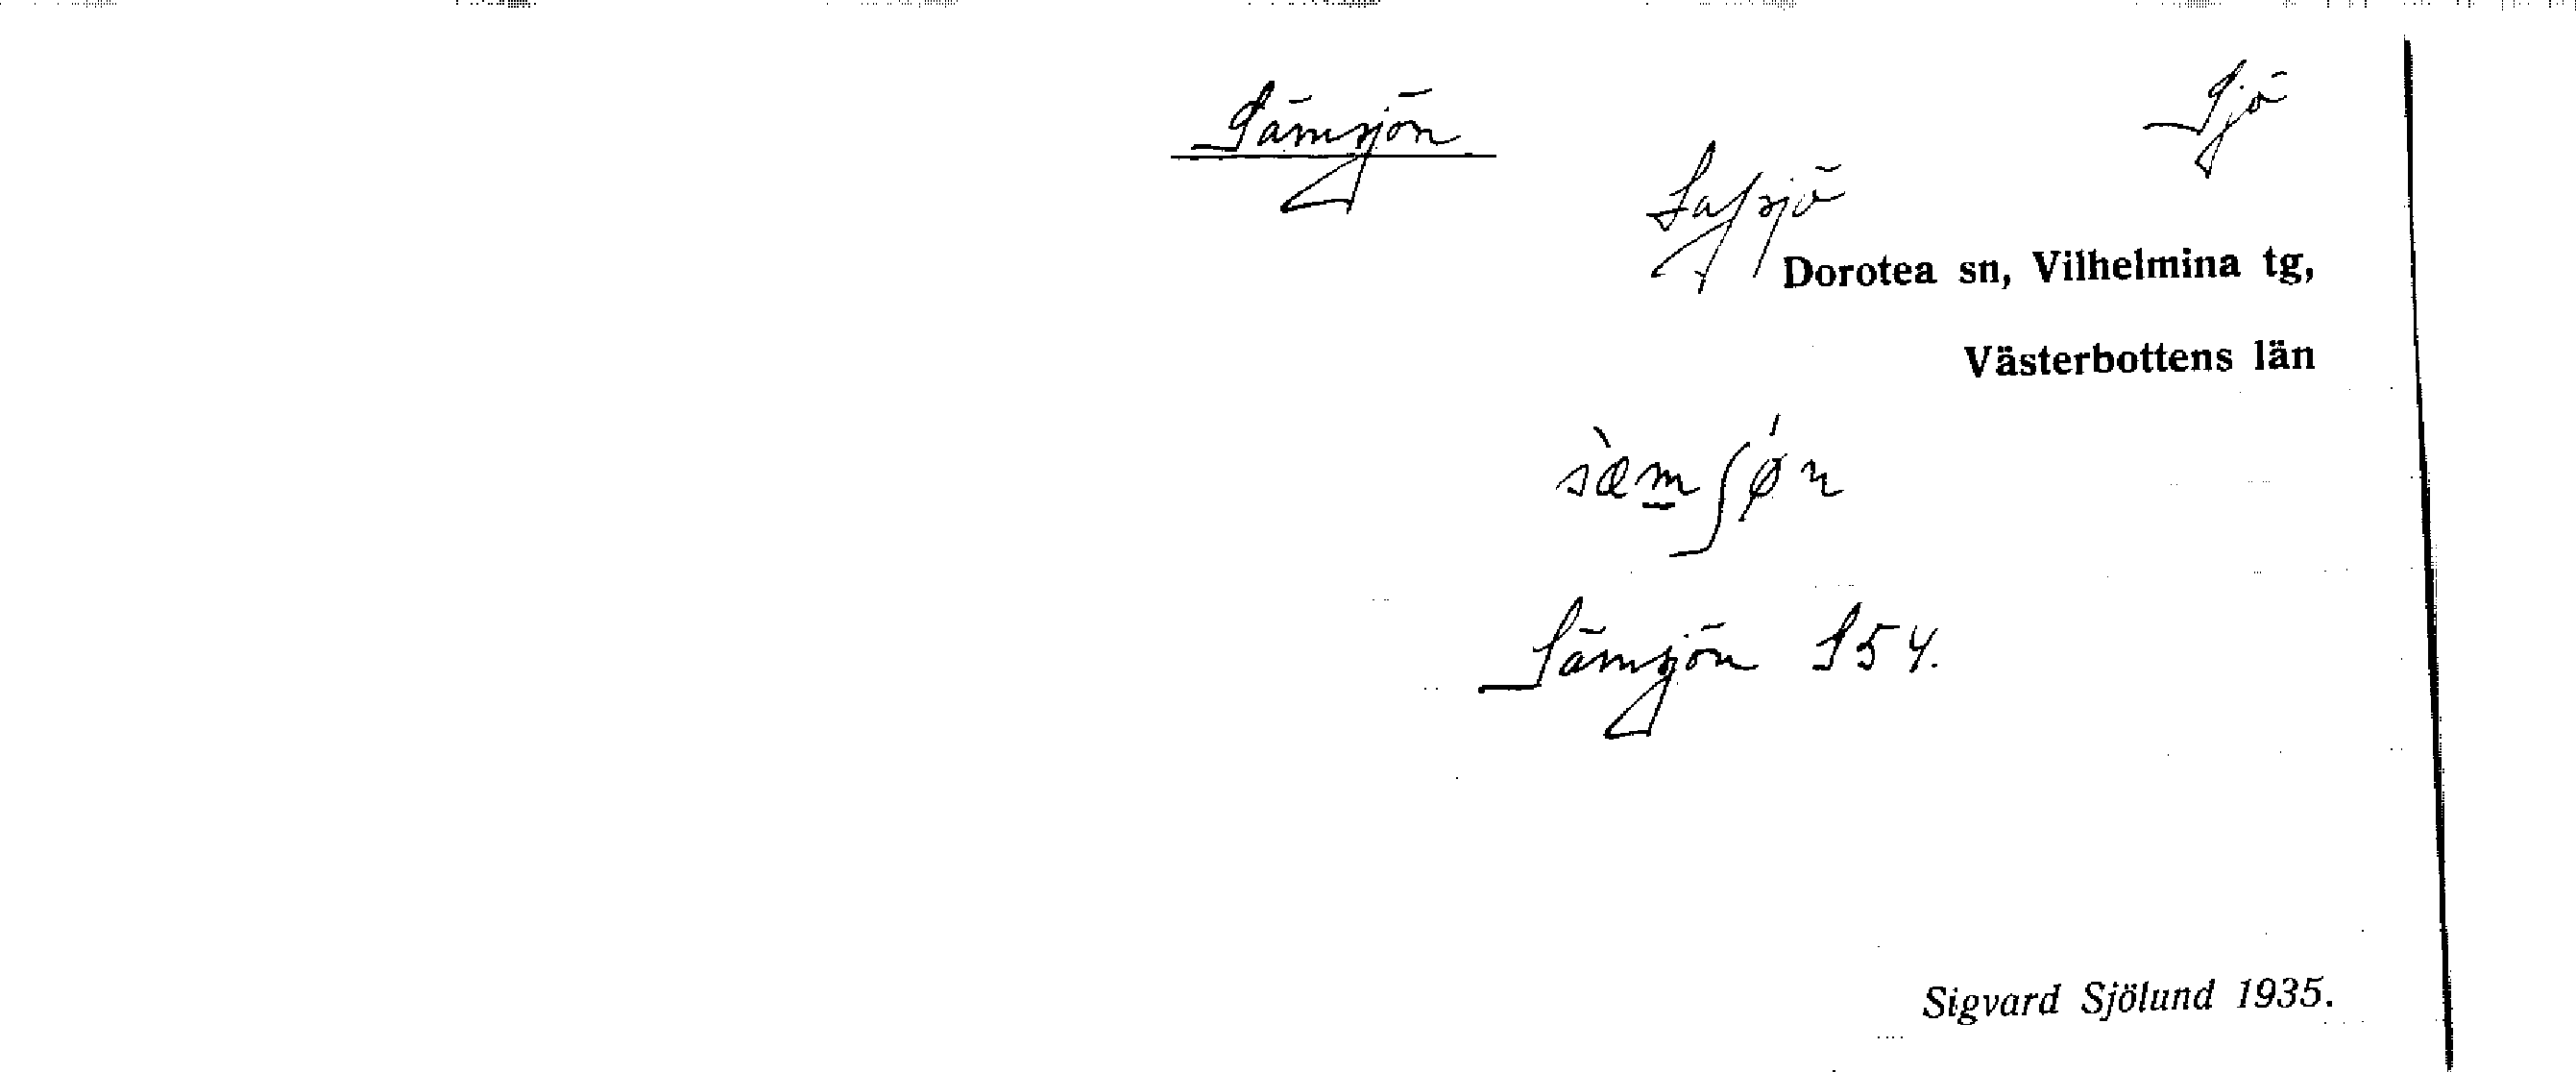 Sämsjön
Sjö
Lafsjö
Dorotea sn, Vilhelmina tg,
Västerbottens län
sæ̀mʃǿn
Sämsjön S54.
Sigvard Sjölund 1935.